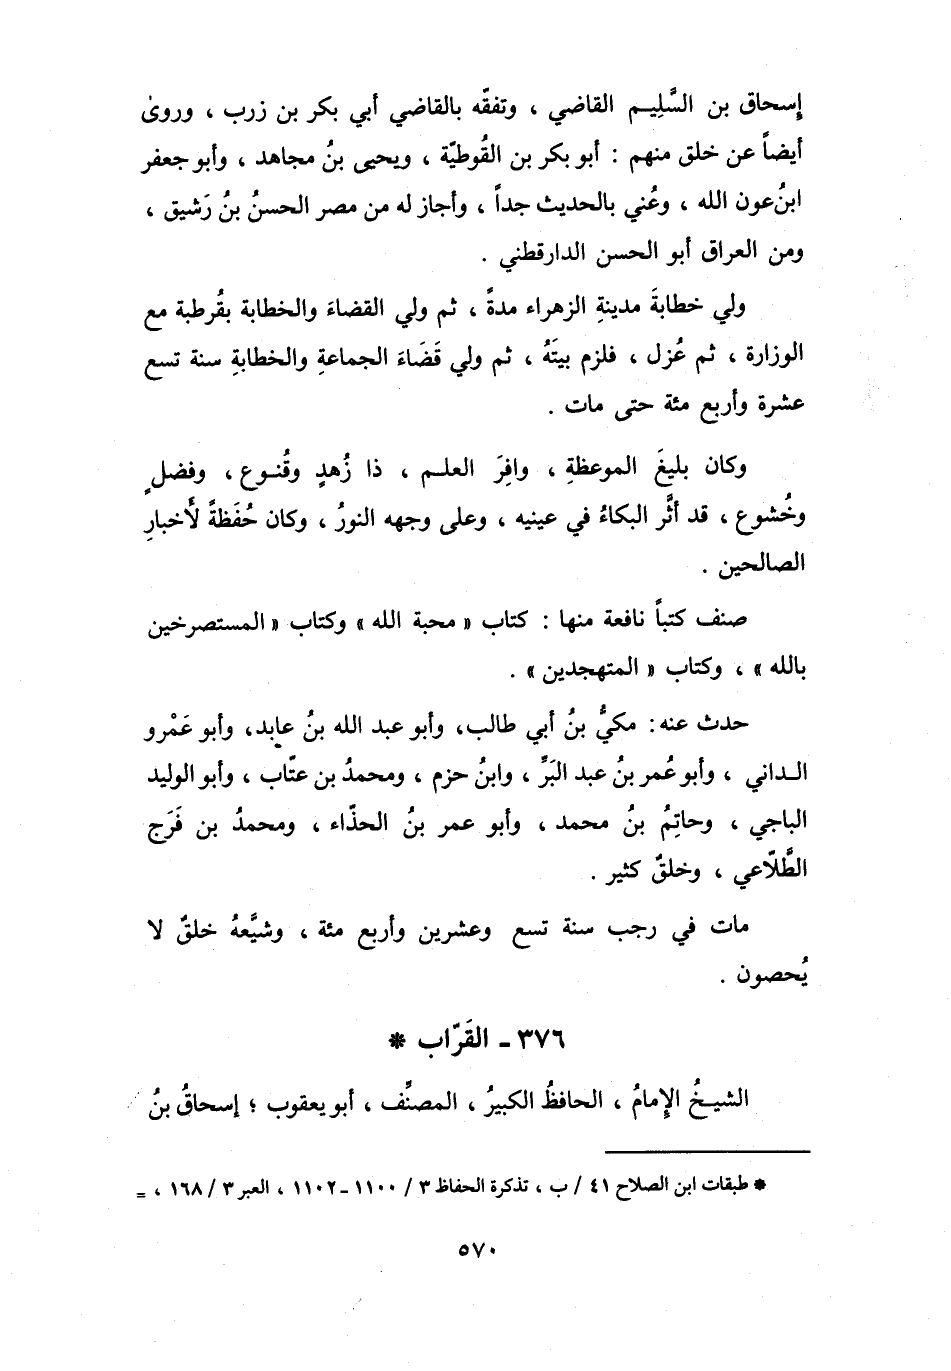 إسحاق بن السَّلِيـم القاضي ، وتفقّه بالقاضي أبي بكر بن زرب ، وروىٰ
أيضاً عن خلق منهم : أبو بكر بن القُوطيّة ، ويحيى بنُ مجاهد ، وأبو جعفر
ابنُ عون الله ، وعُني بالحديث جداً ، وأجاز له من مصر الحسنُ بنُ رَشيق ،
ومن العراق أبو الحسن الدارقطني .
ولي خطابةَ مدينةِ الزهراء مدةً ، ثم ولي القضاءَ والخطابة بقُرطبة مع
الوزارة ، ثم عُزل ، فلزم بيتَهُ ، ثم ولي قَضَاءَ الجماعةِ والخطابةِ سنة تسع
عشرة وأربع مئة حتى مات .
وكان بليغَ الموعظةِ ، وافِرَ العلـم ، ذا زُهدٍ وقُنـوع ، وفضلٍ
وخُشوع ، قد أثَّر البكاءُ في عينيه ، وعلى وجهه النورُ ، وكان حُفَظةً لأخبارِ
الصالحين .
صنف كتباً نافعة منها : كتاب « محبة الله » وكتاب « المستصرخين
بالله » ، وكتاب « المتهجدين » .
حدث عنه : مكيُّ بنُ أبي طالب، وأبو عبد الله بنُ عابد، وأبو عَمْرو
الـداني ، وأبو عُمر بنُ عبد البَرِّ ، وابنُ حزم ، ومحمدُ بن عتّاب ، وأبو الوليد
الباجي ، وحاتِمُ بنُ محمد ، وأبو عمر بنُ الحذّاء ، ومحمدُ بن فَرَج
الطَّلّاعي ، وخلقٌ كثير .
مات في رجب سنة تسع وعشرين وأربع مئة ، وشيَّعهُ خلقٌ لا
يُحصون .
٣٧٦ ـ القَرّاب *
الشيـخُ الإمامُ ، الحافظُ الكبيرُ ، المصنِّف ، أبو يعقوب ؛ إسحاقُ بنُ
* طبقات ابن الصلاح ٤١ / ب ، تذكرة الحفاظ ٣ / ١١٠٠ ـ ١١٠٢ ، العبر ٣ / ١٦٨ ، =
٥٧٠